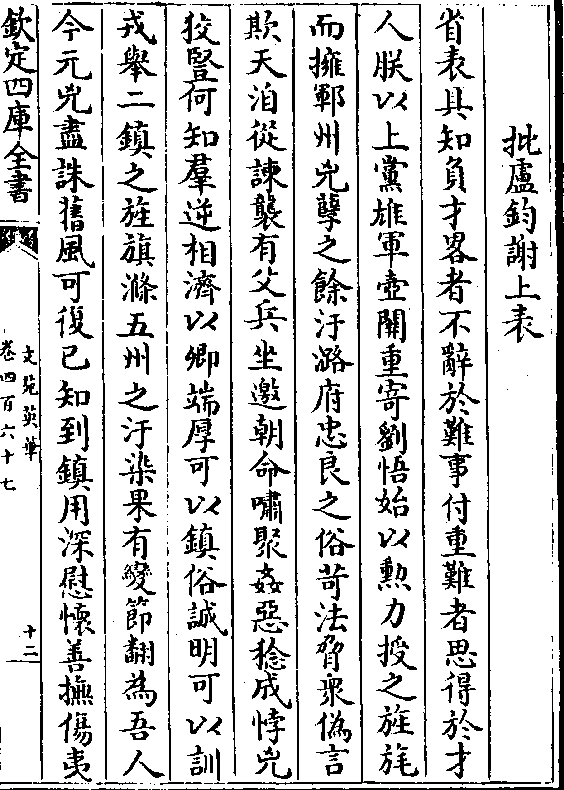 批盧鈞謝上表
省表具知負才畧者不辭於難事付重難者思得於才
人朕以上黨雄軍壺關重寄劉悟始以勲力授之旌旄
而擁鄆州兇孽之餘汙潞府忠良之俗苛法脅衆偽言
欺天洎從諫襲有父兵坐邀朝命嘯聚姦惡稔成悖兇
狡豎何知羣逆相濟以卿端厚可以鎮俗誠明可以訓
戎舉二鎮之旌旗滌五州之汙染果有變節翻為吾人
今元兇盡誅舊風可復已知到鎮用深慰懷善撫傷夷
欽定四庫全書
文苑英華
卷四百六十七
十二